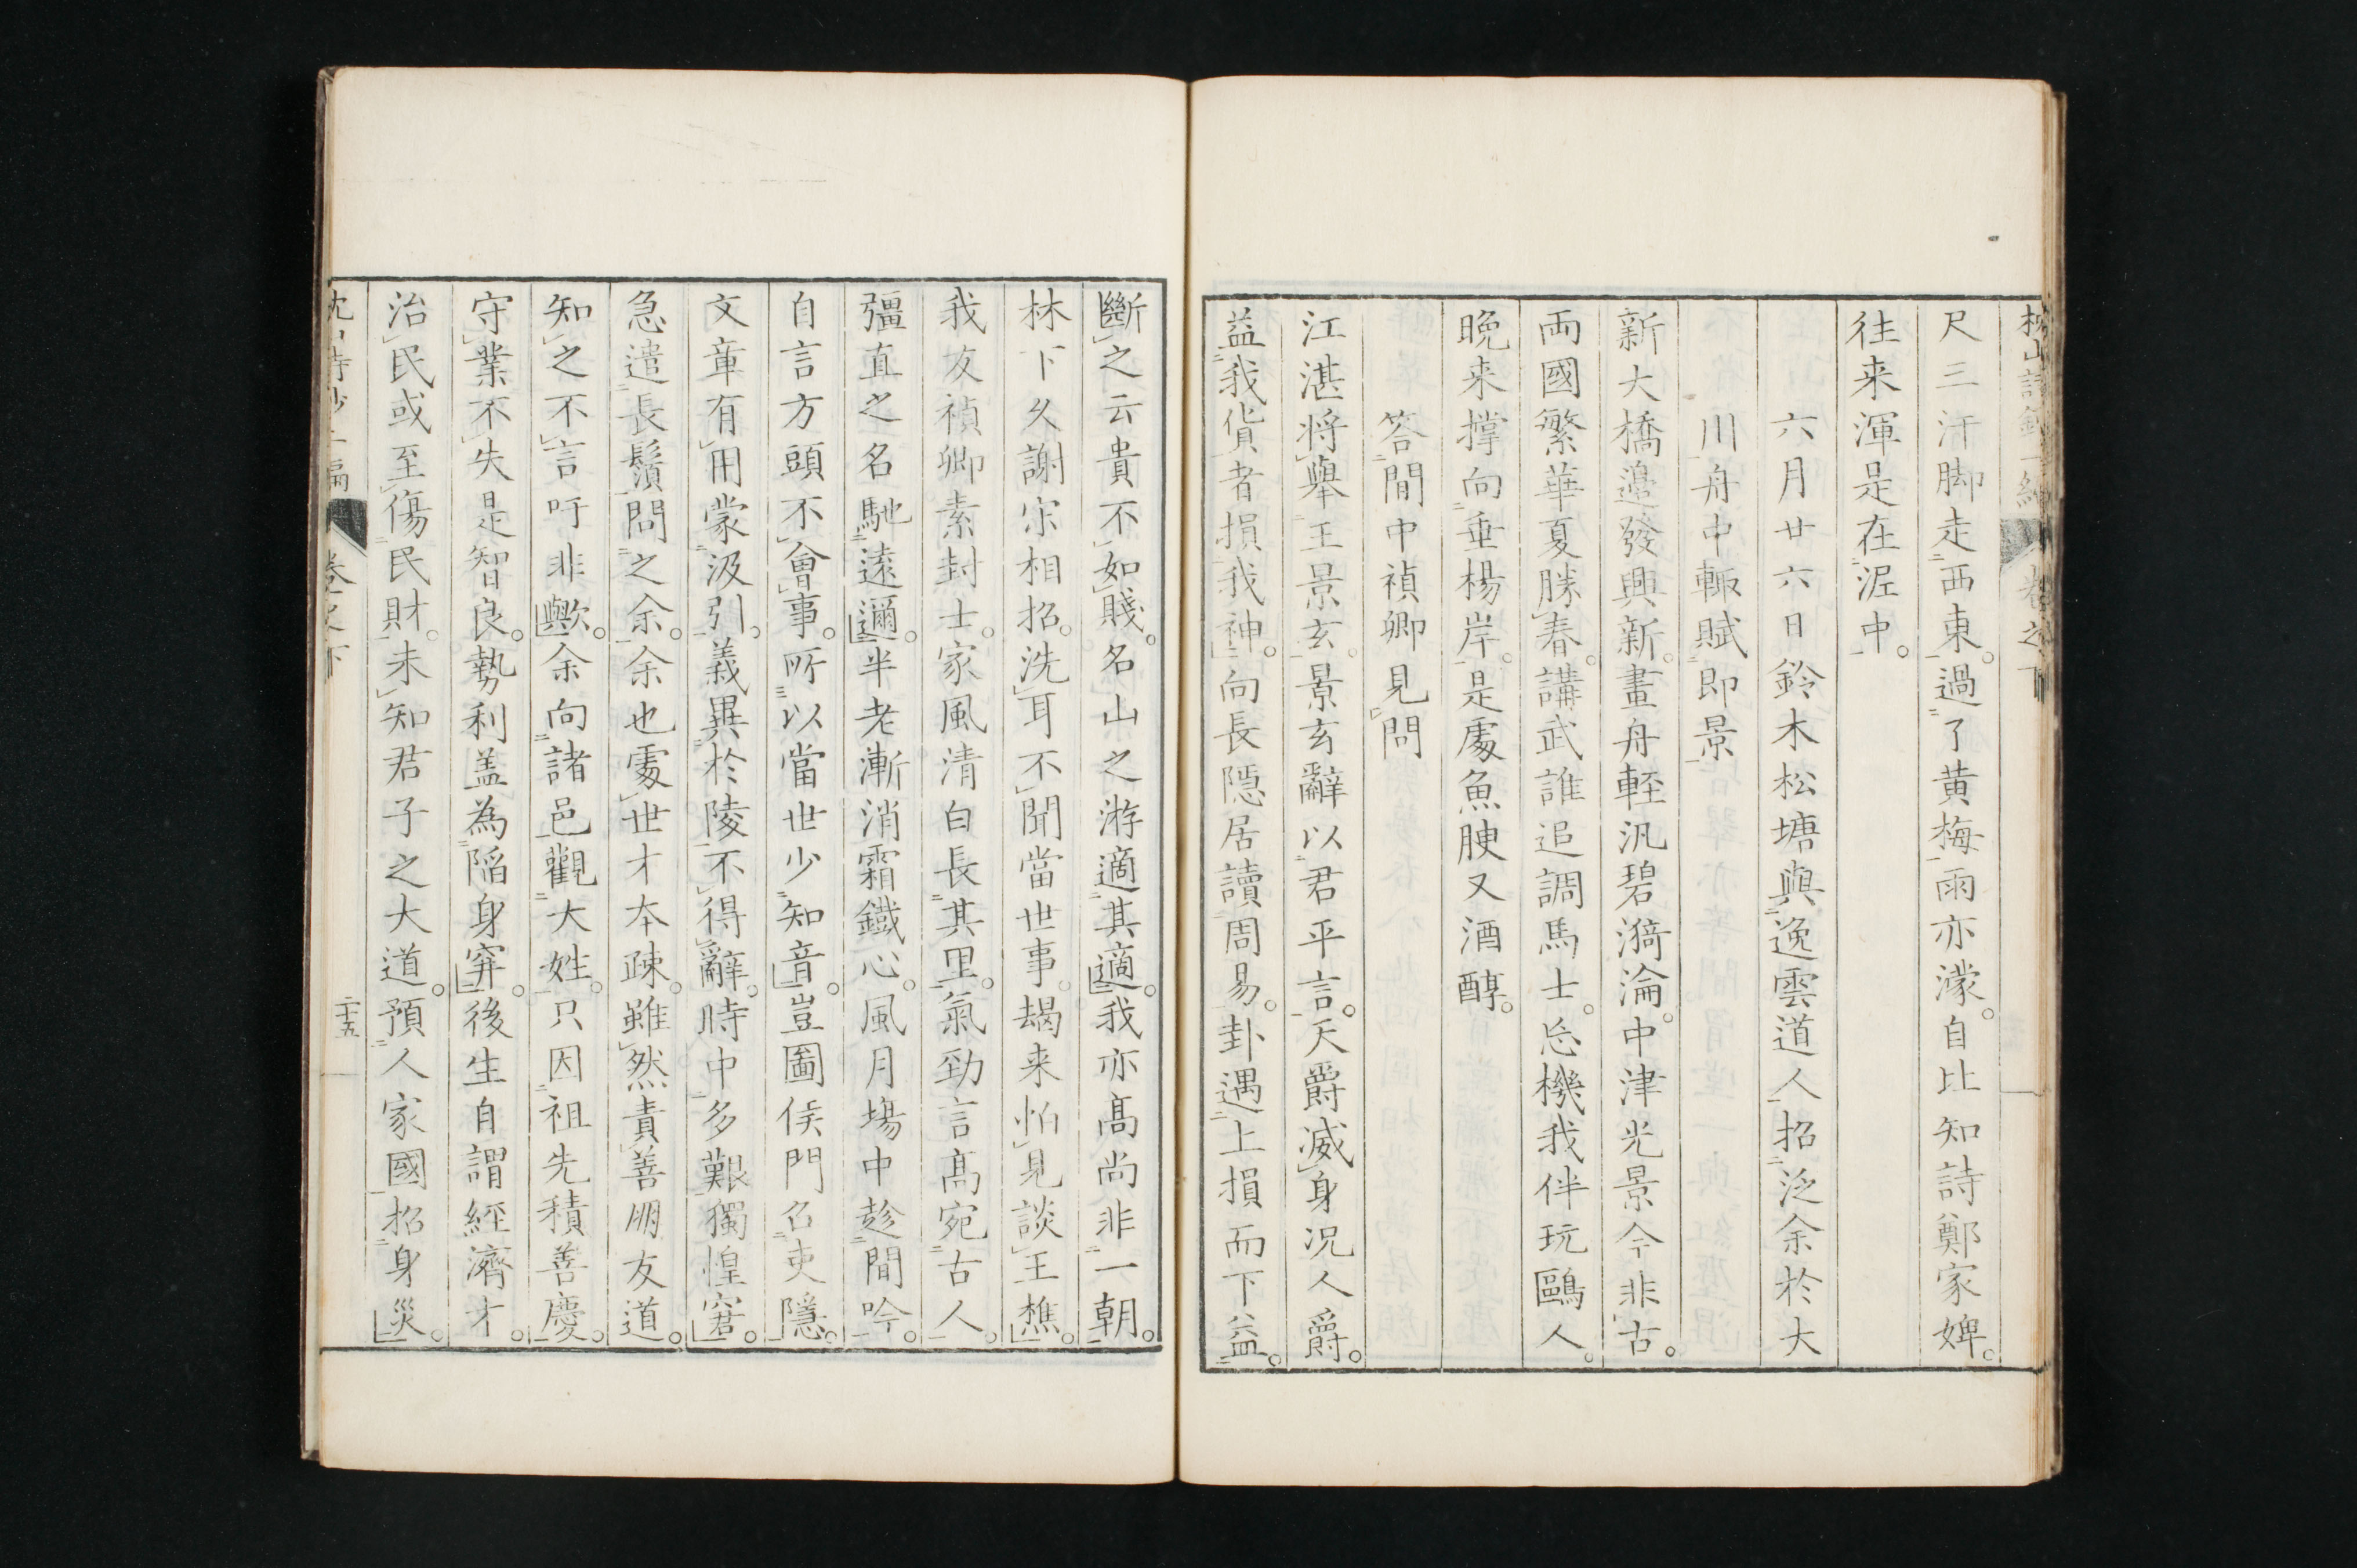 尺三汗脚走西東。過了黄梅雨亦濛。自比知詩鄭家婢。
往来渾是在泥中。
六月廿六日鈴木松塘與逸雲道人招泛余於大
川舟中輙賦即景
新大橋邉發興新。畫舟輕汎碧漪淪。中津光景今非古。
両國繁華夏勝春。講武誰追調馬士。忘機我伴玩鷗人。
晩来撑向垂楊岸。是處魚腴又酒醇。
答間中禎卿見問
江湛将擧王景玄。景玄辭以君平言。天爵滅身況人爵。
益我貨者損我神。向長隠居讀周易。卦遇上損而下益。
斷之云貴不如賤。名山之游適其適。我亦髙尚非一朝。
林下久謝宋相招。洗耳不聞當世事。朅来怕見談王樵。
我友禎卿素封士。家風清白長其里。氣勁言髙宛古人。
彊直之名馳遠邇。半老漸消霜鐵心。風月場中趁間吟。
自言方頭不會事。所以當世少知音。豈圖侯門名吏隱。
文章有用蒙汲引。義異於陵不得辭。時中多艱獨惶窘。
急遣長鬚問之余。余也處世才本疎。雖然責善朋友道。
知之不言吁非歟。余向諸邑觀大姓。只因祖先積善慶。
守業不失是智良。勢利盖為陷身穽。後生自謂經濟才。
治民或至傷民財。未知君子之大道。預人家國招身災。
卷之下
二十五